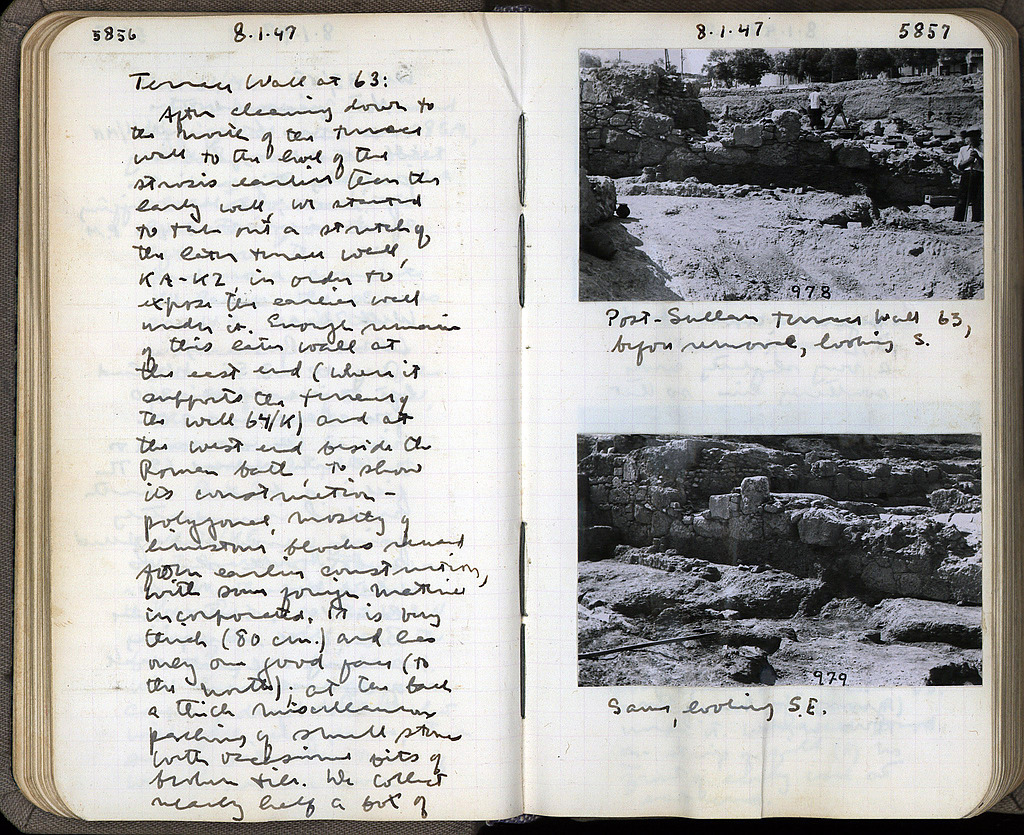 5856
8.1.47
Terrace Wall at 63:
After cleaning down to
the north of the terrace
wall to the level of the
strosis earlier than the
early wall, we started
to take out a stretch of
the later terrace wall,
KA-KZ, in order to
expose the earlier wall
under it. Enough remains
of this later wall at
the east end (where it
supports the
the wall 64/K) and at
the west end beside the
Roman bath to show
its construction -
polygonal, mostly of
limestone blocks reused
from earlier construction,
with some foreign material
incorporated. It is very
thick (80 cm.) and has
only one good face (to
the north); at the back
a thick miscellaneous
packing of small stone
with occasional bits of
broken tile. We collect
nearly half a box of
8.1.47
5857
978
Post-Sullan terrace wall 63,
before removal, looking S.
979
Same, looking S.E.